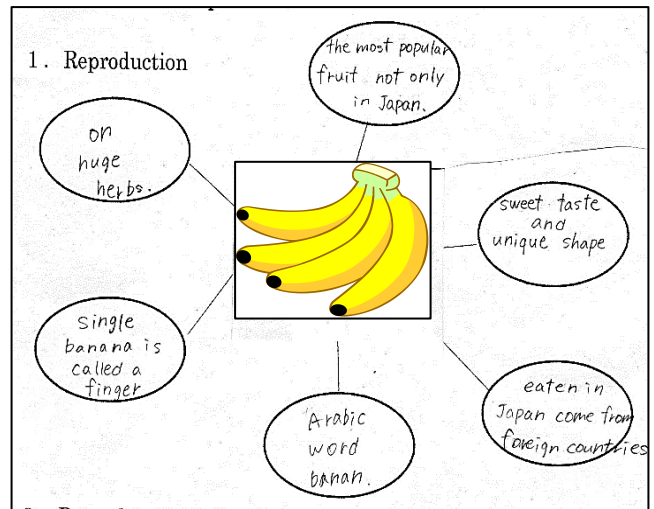 1. Reproduction
the most popular
fruit not only
in Japan.
on
huge
herbs.
sweet taste
and
unique shape
Single
banana is
called a
finger
Arabic
word
banan.
eaten in
Japan come from
foreign countries